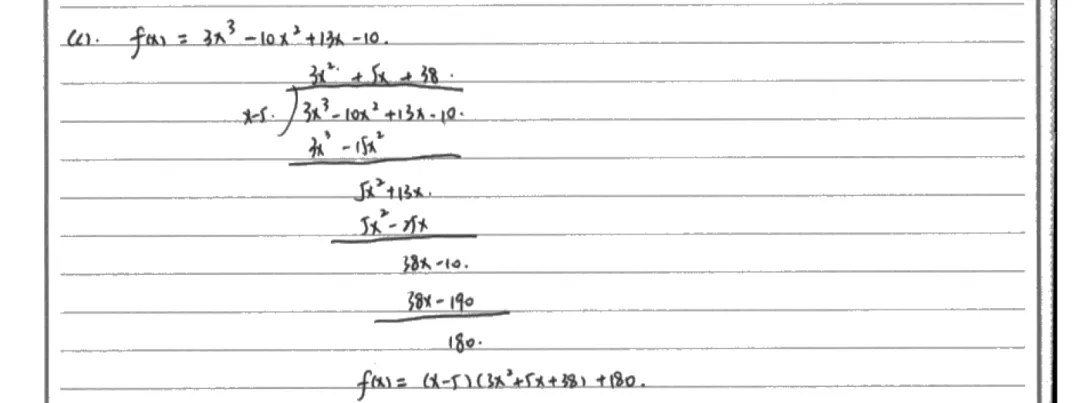 (c). f(x) = 3x³ - 10x² + 13x - 10.
3x² + 5x + 38.
x-5. ) 3x³ - 10x² + 13x - 10.
3x³ - 15x²
5x² + 13x.
5x² - 25x
38x - 10.
38x - 190
180.
f(x) = (x-5)(3x²+5x+38) + 180.